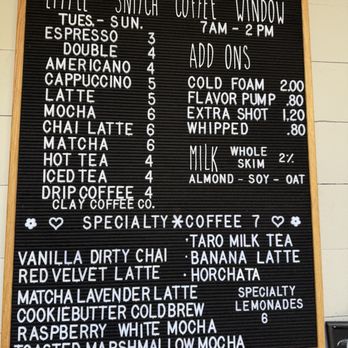 LITTLE SNITCH COFFEE WINDOW
TUES.- SUN. 7AM - 2 PM
ESPRESSO 3
DOUBLE 4
AMERICANO 4
CAPPUCCINO 5
LATTE 5
MOCHA 6
CHAI LATTE 6
MATCHA 6
HOT TEA 4
ICED TEA 4
DRIP COFFEE 4
CLAY COFFEE CO.
ADD ONS
COLD FOAM 2.00
FLAVOR PUMP .80
EXTRA SHOT 1.20
WHIPPED .80
MILK WHOLE 2%
SKIM
ALMOND - SOY - OAT
SPECIALTY COFFEE 7
VANILLA DIRTY CHAI
RED VELVET LATTE
MATCHA LAVENDER LATTE
COOKIEBUTTER COLDBREW
RASPBERRY WHITE MOCHA
TOASTED MARSHMALLOW MOCHA
· TARO MILK TEA
· BANANA LATTE
· HORCHATA
SPECIALTY
LEMONADES
6